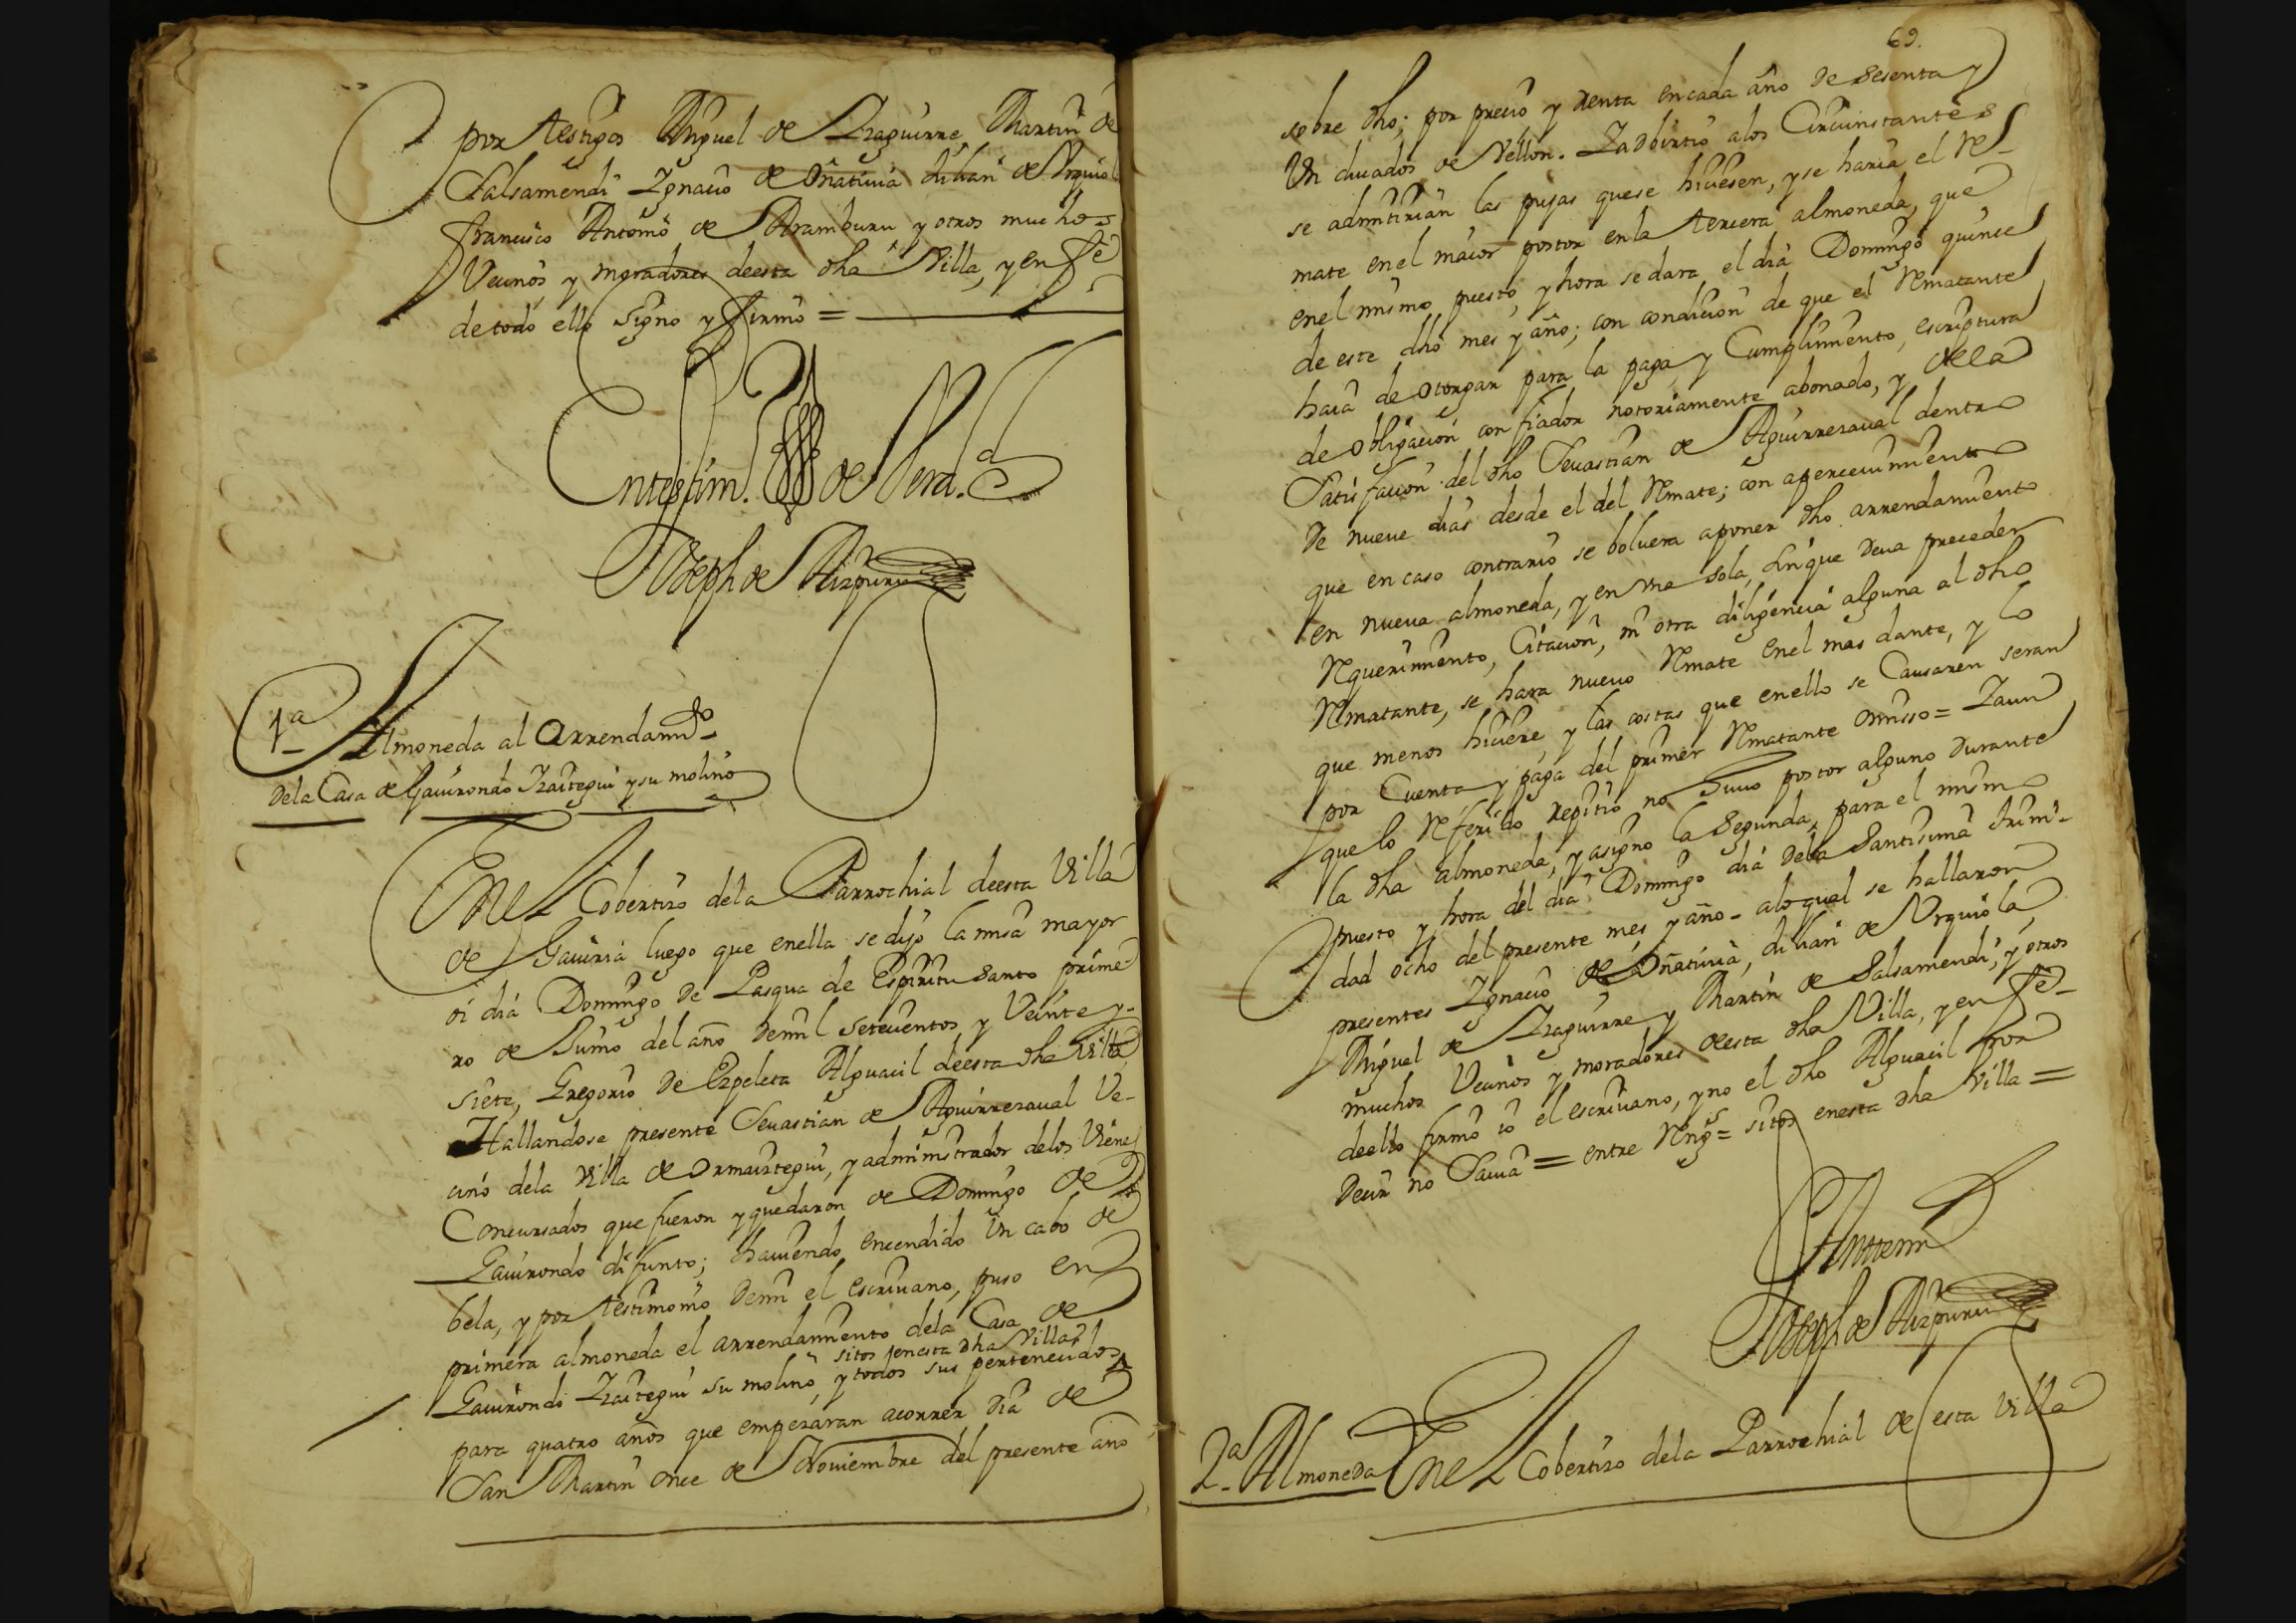 por testigos Miguel de Yzaguirre, Martin de
Salsamendi Ygnacio de Oñativia Julian de Vrquiol
francisco Antonio de Aramburu y otros muchos
Vecinos y moradores deesta dha Villa, y en fee
de todo ello signo y firmo =
En testim.º de Verd.d
Joseph de Aizpuru
1ª Almoneda al Arrendam.to
dela Casa de Gauirondo Yzaitegui y su molino
En el Cobertizo dela Parrochial deesta Villa
de Gauiria luego que enella se dijo la misa mayor
oi dia Domingo de Pasqua de Espiritu Santo prime
ro de Junio del año demil setecientos y Veinte y
siete, Gregorio de Ezpeleta Alguacil deesta dha Villa
Hallandose presente Seuastian de Aguirrezaual Ve-
cino dela Villa de Ormaiztegui, y administrador delos Vienes
Concursados que fueron y quedaron de Domingo de
Gauirondo difunto; hauiendo encendido Un cabo de
bela, y por testimonio demi el escriuano, puso en
primera almoneda el arrendamiento dela Casa de
sitos enesta dha Villa
Gauirondo Yzaitegui su molino, y todos sus pertenecidos
para quatro años que empezaran acorrer dia de
San Martin once de Nouiembre del presente año
69.
sobre dho; por precio y renta encada año de sesenta y
Un ducados de Vellon. Y adbirtio alos Circunstantes
se admitirian las pujas quese hiciesen, y se haria el Re-
mate enel maior postor enla tercera almoneda, que
enel mismo puesto, y hora se dara el dia Domingo quince
de este dho mes y año; con condicion de que el Rematante
haia de otorgar para la paga y Cumplimiento, escriptura
de obligacion con fiador notoriamente abonado, y dela
Satisfacion del dho Seuastian de Aguirrezaual dentro
de nueue dias desde el del Remate; con apercevimiento
que encaso contrario se boluera aponer dho arrendamiento
en nueua almoneda, y en vna sola, sinque deua preceder
Requerimiento, Citacion, ni otra diligencia alguna al dho
Rematante, se hara nueuo Remate enel mas dante, y lo
que menos hiciere, y las costas que enello se Causaren seran
por Cuenta y paga del primer Rematante omisso = Y aun
que lo Referido repitio no huuo postor alguno durante
la dha almoneda, y asigno la Segunda, para el mismo
puesto y hora del dia Domingo dia dela Santisima trini-
dad ocho del presente mes y año - alo qual se hallaron
presentes Ygnacio de Oñativia, Julian de Vrquiola,
Miguel de Yzaguirre y Martin de Salsamendi, y otros
muchos Vecinos y moradores deesta dha Villa, y en fee
deello firmo io el escriuano, y no el dho Alguacil por
decir no Sauia = entre Reng.s = sitos enesta dha Villa =
Ante mi
Joseph de Aizpuru
2ª Almoneda En el Cobertizo dela Parrochial de esta Villa